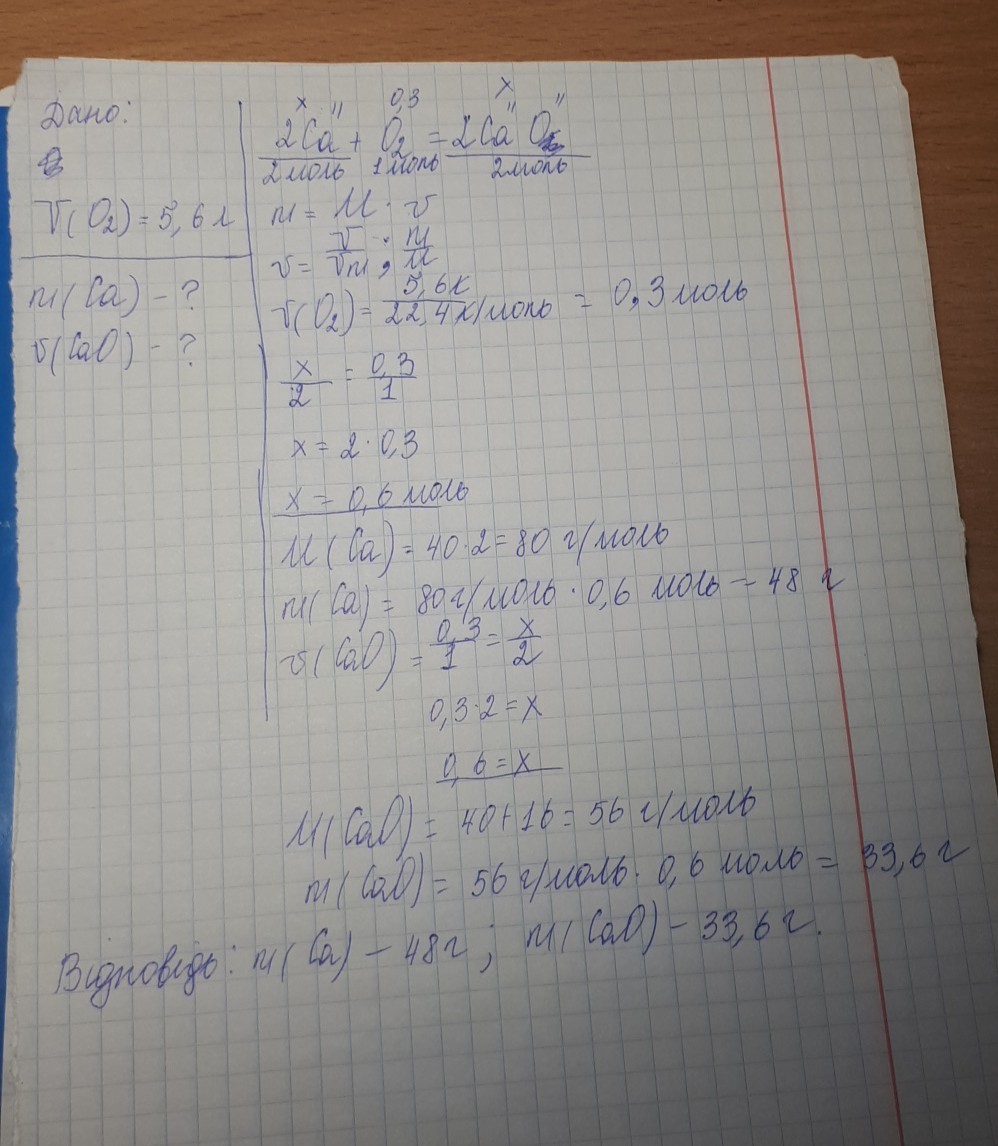 Дано:
V(O₂) = 5,6 л
m(Ca) - ?
v(CaO) - ?
x II 0,3 x II II
2Ca + O₂ = 2CaO
2моль 1моль 2моль
m = M · v
v = V/Vm ; m/M
v(O₂) = 5,6л/22,4л/моль = 0,3 моль
x/2 = 0,3/1
x = 2 · 0,3
x = 0,6 моль
M(Ca) = 40·2 = 80 г/моль
m(Ca) = 80г/моль · 0,6 моль - 48 г
v(CaO) = 0,3/1 = x/2
0,3·2 = x
0,6 = x
M(CaO) = 40+16 = 56 г/моль
m(CaO) = 56 г/моль · 0,6 моль = 33,6 г
Відповідь: m(Ca) - 48г ; m(CaO) - 33,6 г.